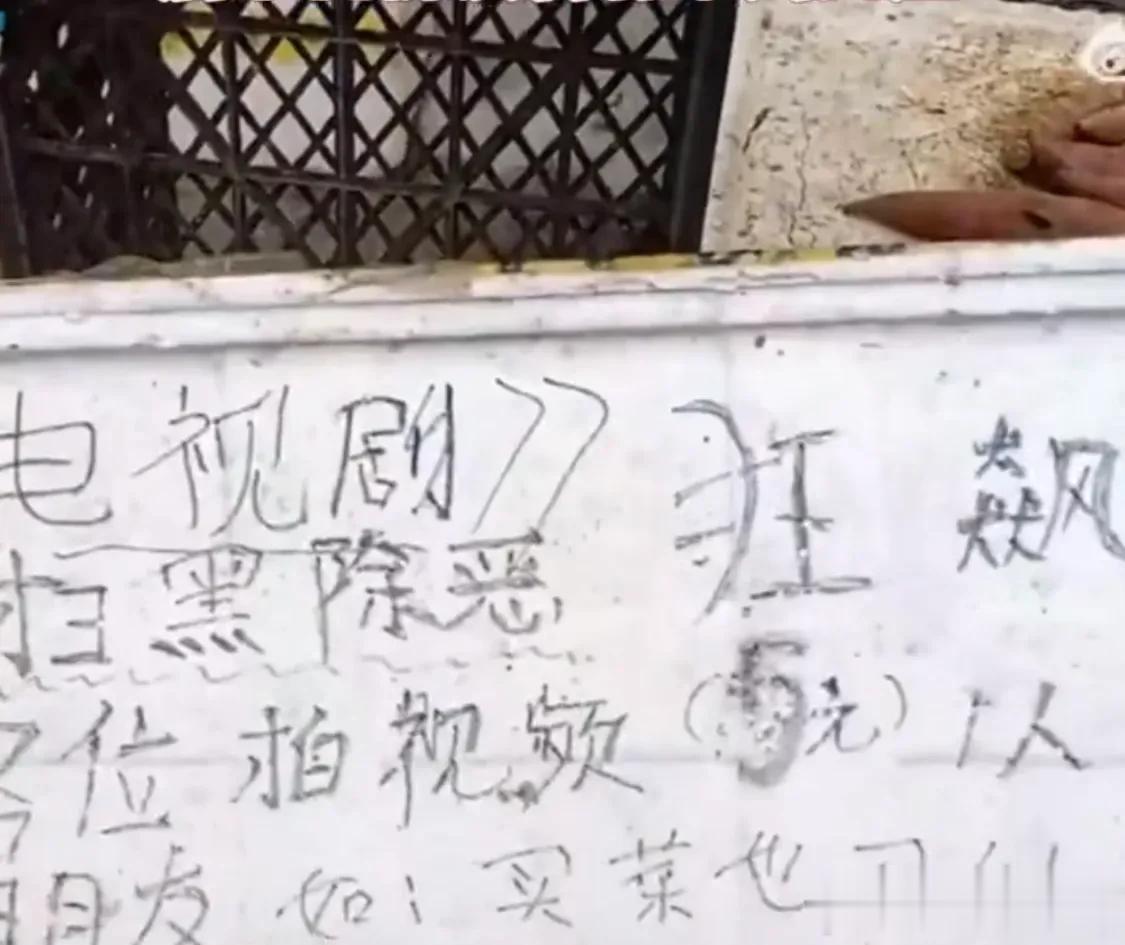 电视剧》狂飙
扫黑除恶
各位拍视频(5元)1人
朋友如:买菜也可以